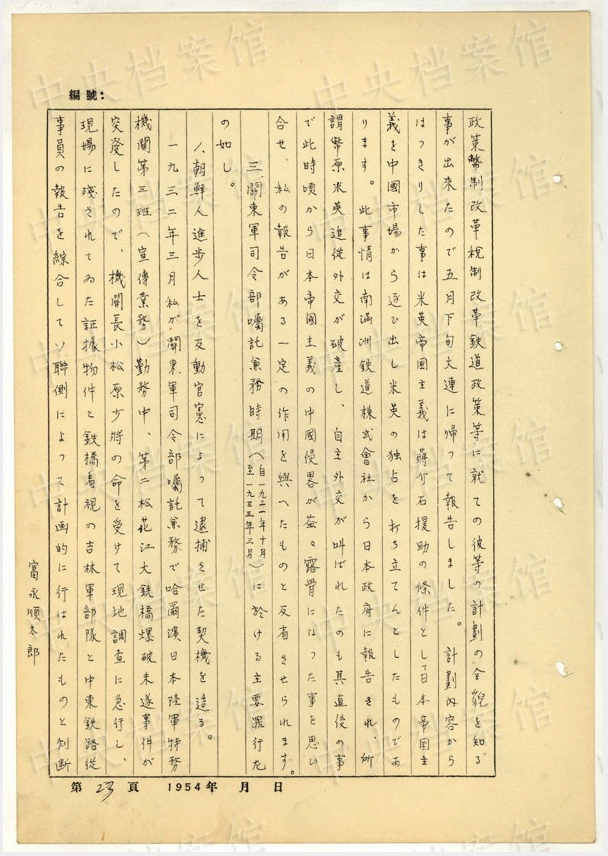 編號：
政策幣制改革税制改革鉄道政策等に就ての彼等の計劃の全貌を知る
事が出来たので五月下旬大連に帰って報告しました。計劃内容から
はっきりした事は米英帝国主義は蔣介石援助の條件として日本帝国主
義を中國市場から逐ひ出し米英の独占を打ち立てんとしたものであ
ります。此事情は南滿洲鉄道株式會社から日本政府に報告され、所
謂幣原米英追従外交が破産し、自主外交が叫ばれたのも其直後の事
で此時頃から日本帝國主義の中國侵畧が益々露骨になった事を思ひ
合せ、私の報告がある一定の作用を與へたものと反省させられます。
三、關東軍司令部囑託兼務時期（自一九三一年十月至一九三三年三月）に於ける主要罪行左
の如し。
1、朝鮮人進步人士を反動官憲によって逮捕させた契機を造る。
一九三二年三月私が關東軍司令部囑託兼務で哈爾濱日本陸軍特務
機關第三班（宣傳業務）勤務中、第二松花江大鉄橋爆破未遂事件が
突発したので、機關長小松原少將の命を受けて現地調査に急行し、
現場に殘されてゐた証據物件と鉄橋看視の吉林軍部隊と中東鉄路從
事員の報告を綜合してソ聯側によって計画的に行はれたものと判断
富永順太郎
第 23 頁 1954年 月 日
中央档案馆